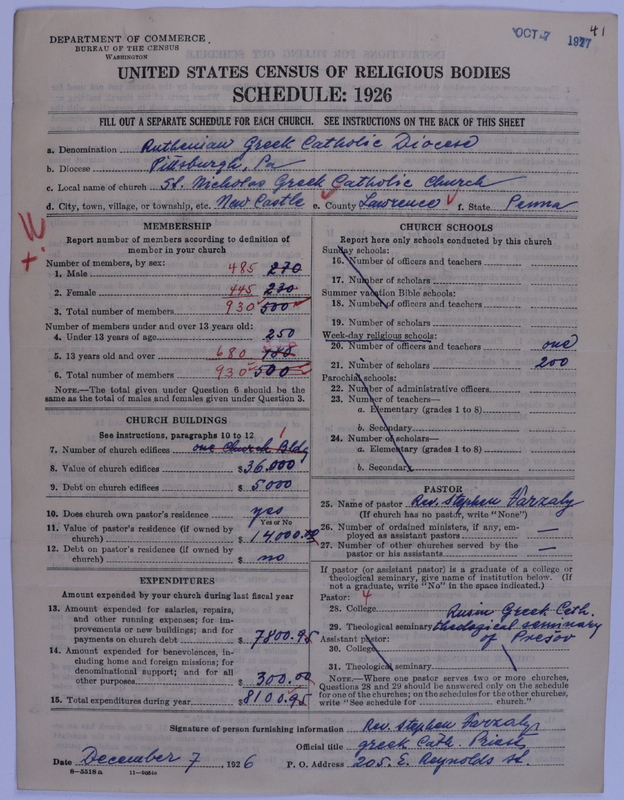 41
OCT 7 1927
DEPARTMENT OF COMMERCE
BUREAU OF THE CENSUS
WASHINGTON
UNITED STATES CENSUS OF RELIGIOUS BODIES
SCHEDULE: 1926
FILL OUT A SEPARATE SCHEDULE FOR EACH CHURCH. SEE INSTRUCTIONS ON THE BACK OF THIS SHEET
a. Denomination Ruthenian Greek Catholic Diocese
b. Diocese Pittsburgh, Pa
c. Local name of church St. Nicholas Greek Catholic Church
d. City, town, village, or township, etc. New Castle e. County Lawrence f. State Penna
MEMBERSHIP
Report number of members according to definition of member in your church
Number of members, by sex:
1. Male 485 270
2. Female 445 230
3. Total number of members 930 500
Number of members under and over 13 years old:
4. Under 13 years of age 250
5. 13 years old and over 680
6. Total number of members 930 500
NOTE.—The total given under Question 6 should be the
same as the total of males and females given under Question 3.
CHURCH BUILDINGS
See instructions, paragraphs 10 to 12
7. Number of church edifices one Church Bldg 1
8. Value of church edifices $36.000
9. Debt on church edifices $5000
10. Does church own pastor's residence yes
Yes or No
11. Value of pastor's residence (if owned by
church) $14000.00
12. Debt on pastor's residence (if owned by
church) $ no
EXPENDITURES
Amount expended by your church during last fiscal year
13. Amount expended for salaries, repairs,
and other running expenses; for im-
provements or new buildings; and for
payments on church debt $7800.95
14. Amount expended for benevolences, in-
cluding home and foreign missions; for
denominational support; and for all
other purposes $300.00
15. Total expenditures during year $8100.95
CHURCH SCHOOLS
Report here only schools conducted by this church
Sunday schools:
16. Number of officers and teachers
17. Number of scholars
Summer vacation Bible schools:
18. Number of officers and teachers
19. Number of scholars
Week-day religious schools:
20. Number of officers and teachers one
21. Number of scholars 200
Parochial schools:
22. Number of administrative officers
23. Number of teachers—
a. Elementary (grades 1 to 8)
b. Secondary
24. Number of scholars—
a. Elementary (grades 1 to 8)
b. Secondary
PASTOR
25. Name of pastor Rev. Stephen Varzaly
(If church has no pastor, write "None")
26. Number of ordained ministers, if any, em-
ployed as assistant pastors —
27. Number of other churches served by the
pastor or his assistants —
If pastor (or assistant pastor) is a graduate of a college or
theological seminary, give name of institution below. (If
not a graduate, write "No" in the space indicated.)
Pastor: 4
28. College Rusin Greek Cath.
29. Theological seminary theological seminary
Assistant pastor: of Presov
30. College
31. Theological seminary
NOTE.—Where one pastor serves two or more churches,
Questions 28 and 29 should be answered only on the schedule
for one of the churches; on the schedules for the other churches,
write "See schedule for church."
Signature of person furnishing information Rev. Stephen Varzaly
Official title Greek Cath. Priest
Date December 7, 1926 P. O. Address 205. E. Reynolds st.
8—5518 a 11—9084